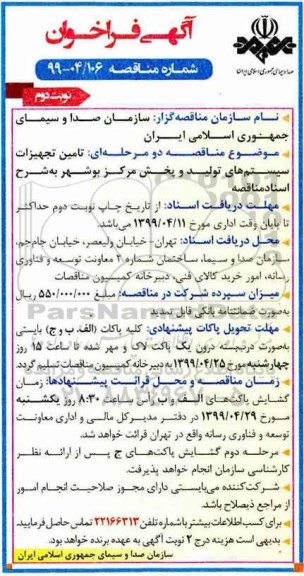 صدا و سیمای جمهوری اسلامی ایران
آگهی فراخوان
شماره مناقصه ۹۹-۰۴/۱۰۶
نوبت دوم
نام سازمان مناقصه‌گزار: سازمان صدا و سیمای
جمهوری اسلامی ایران
موضوع مناقصه دو مرحله‌ای: تامین تجهیزات
سیستم‌های تولید و پخش مرکز بوشهر به‌شرح
اسنادمناقصه
مهلت دریافت اسناد: از تاریخ چاپ نوبت دوم حداکثر
تا پایان وقت اداری مورخ ۱۳۹۹/۰۴/۱۱ می‌باشد.
محل دریافت اسناد: تهران - خیابان ولیعصر، خیابان جام‌جم،
سازمان صدا و سیما، ساختمان شماره ۲ معاونت توسعه و فناوری
رسانه، امور خرید کالای فنی، دبیرخانه کمیسیون مناقصات
میزان سپرده شرکت در مناقصه: مبلغ ۵۵۰/۰۰۰/۰۰۰ ریال
به‌صورت ضمانتنامه بانکی قابل تمدید
مهلت تحویل پاکات پیشنهادی: کلیه پاکات (الف، ب و ج) بایستی
به‌صورت دربسته درون یک پاکت لاک و مهر شده تا ساعت ۱۵ روز
چهارشنبه مورخ ۱۳۹۹/۰۴/۲۵ به دبیرخانه کمیسیون مناقصات تسلیم گردد.
زمان مناقصه و محل قرائت پیشنهادها: زمان
گشایش پاکت‌های الف و ب راس ساعت ۸:۳۰ روز یکشنبه
مورخ ۱۳۹۹/۰۴/۲۹ در دفتر مدیرکل مالی و اداری معاونت
توسعه و فناوری رسانه واقع در تهران قرائت خواهد شد.
مرحله دوم گشایش پاکت‌های ج پس از ارائه نظر
کارشناسی سازمان انجام خواهد پذیرفت.
شرکت‌کننده می‌بایستی دارای مجوز صلاحیت انجام امور
از مراجع ذیصلاح باشد.
برای کسب اطلاعات بیشتر با شماره تلفن ۲۲۱۶۶۳۱۳ تماس حاصل فرمایید.
بدیهی است هزینه درج ۲ نوبت آگهی به عهده برنده خواهد بود.
سازمان صدا و سیمای جمهوری اسلامی ایران